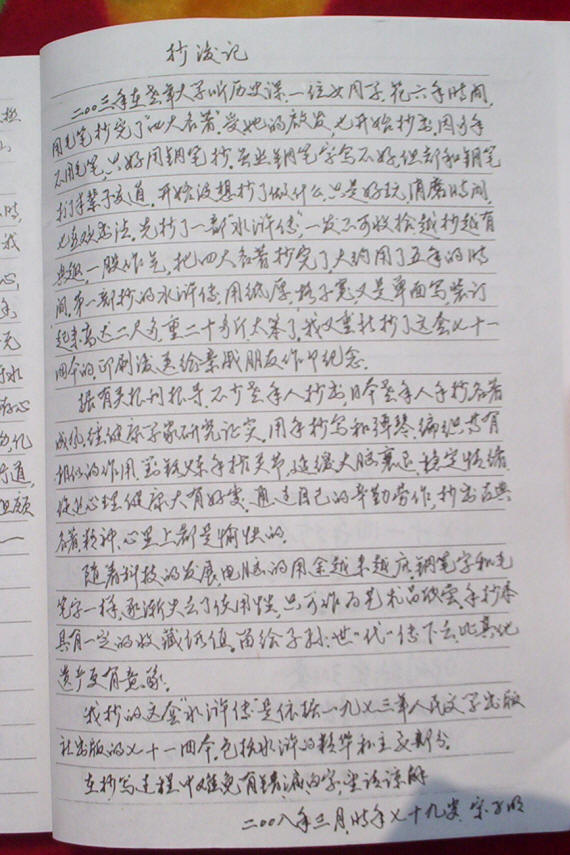 抄后记
二00三年在老年大学听历史课,一位女同学,花六年时间,
用毛笔抄完了"四大名著",受她的启发,也开始抄书,因多年
不用毛笔,只好用钢笔抄,虽然钢笔字写不好,但却和钢笔
打了半辈子交道,开始没想抄了做什么,只是好玩,消磨时间,
也喜欢书法,先抄了一部"水浒传",一发不可收拾越抄越有
兴趣,一股作气,把四大名著抄完了,大约用了五年的时
间,第一部抄的水浒传,用纸厚,格子宽,又是单面写,装订
起来高达二尺多,重二十多斤,太笨了,我又重新抄了这套七十一
回本的,印刷后送给亲戚朋友作个纪念.
据有关报刊报导,不少老年人抄书,日本老年人手抄名著
成风,经健康学家研究证实,用手抄写和弹琴、编织等有
相似的作用,对锻炼手指关节,延缓大脑衰退,稳定情绪,
促进心理健康大有好处,通过自己的辛勤劳作,抄出古典
名著,精神、心里上都是愉快的.
随着科技的发展,电脑的用途越来越广,钢笔字和毛
笔字一样,逐渐失去了使用性,只可作为艺术品欣赏,手抄本
具有一定的收藏价值,留给子孙,世世代代传下去,比其他
遗产更有意义.
我抄的这套"水浒传"是依据一九七三年人民文学出版
社出版的七十一回本,包括水浒的精华和主要部分.
在抄写过程中难免有错、漏的字,望请谅解
二00八年三月,时年七十九岁